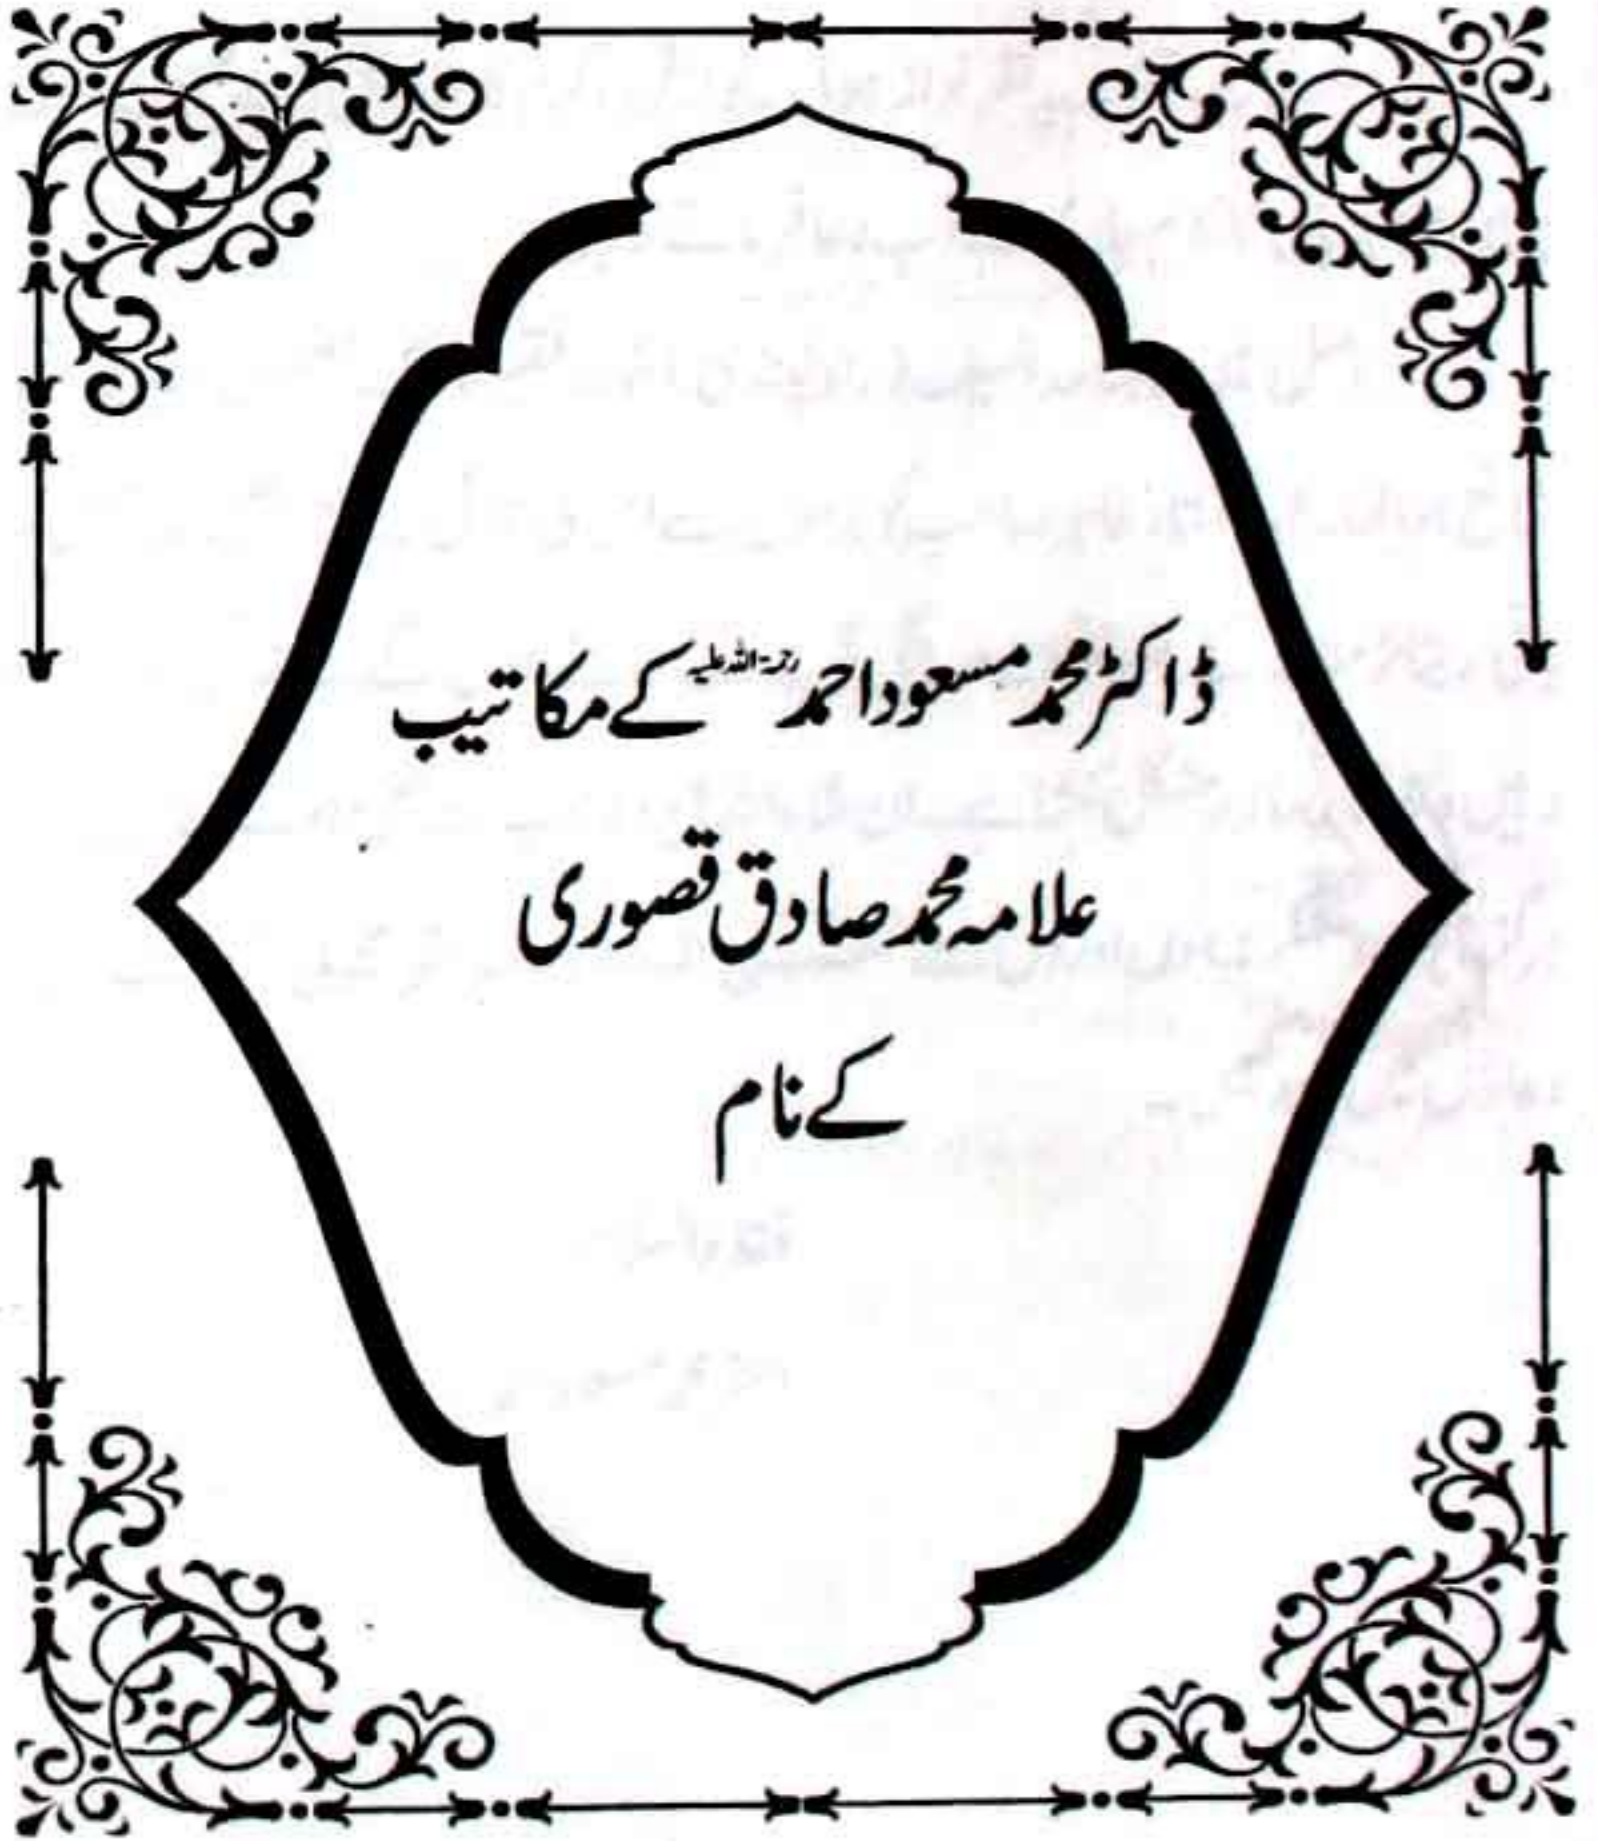 ڈاکٹر محمد مسعود احمد رحمۃ اللہ علیہ کے مکاتیب
علامہ محمد صادق قصوری
کے نام